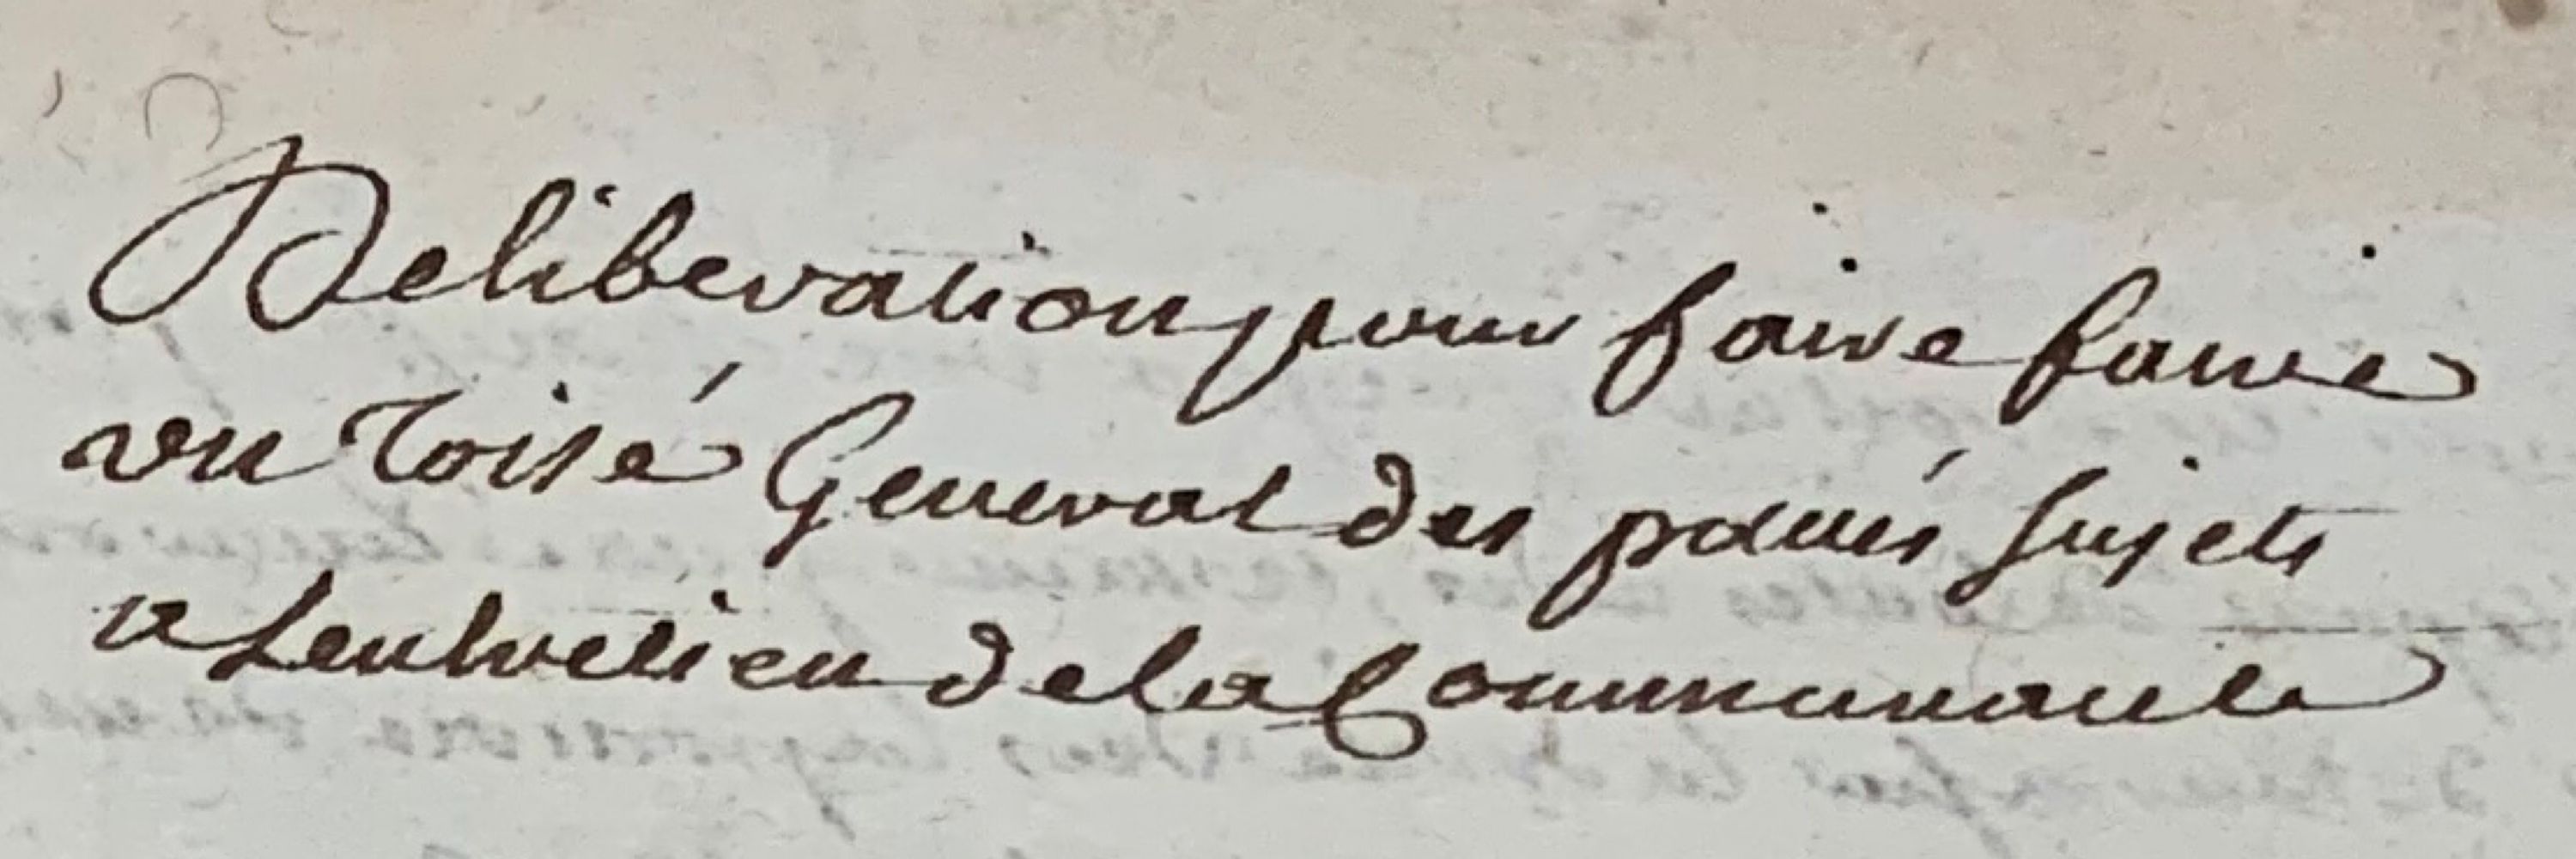 Deliberation pour faire faire
un Toisé General des pavés sujets
a Lentretien de la Communauté